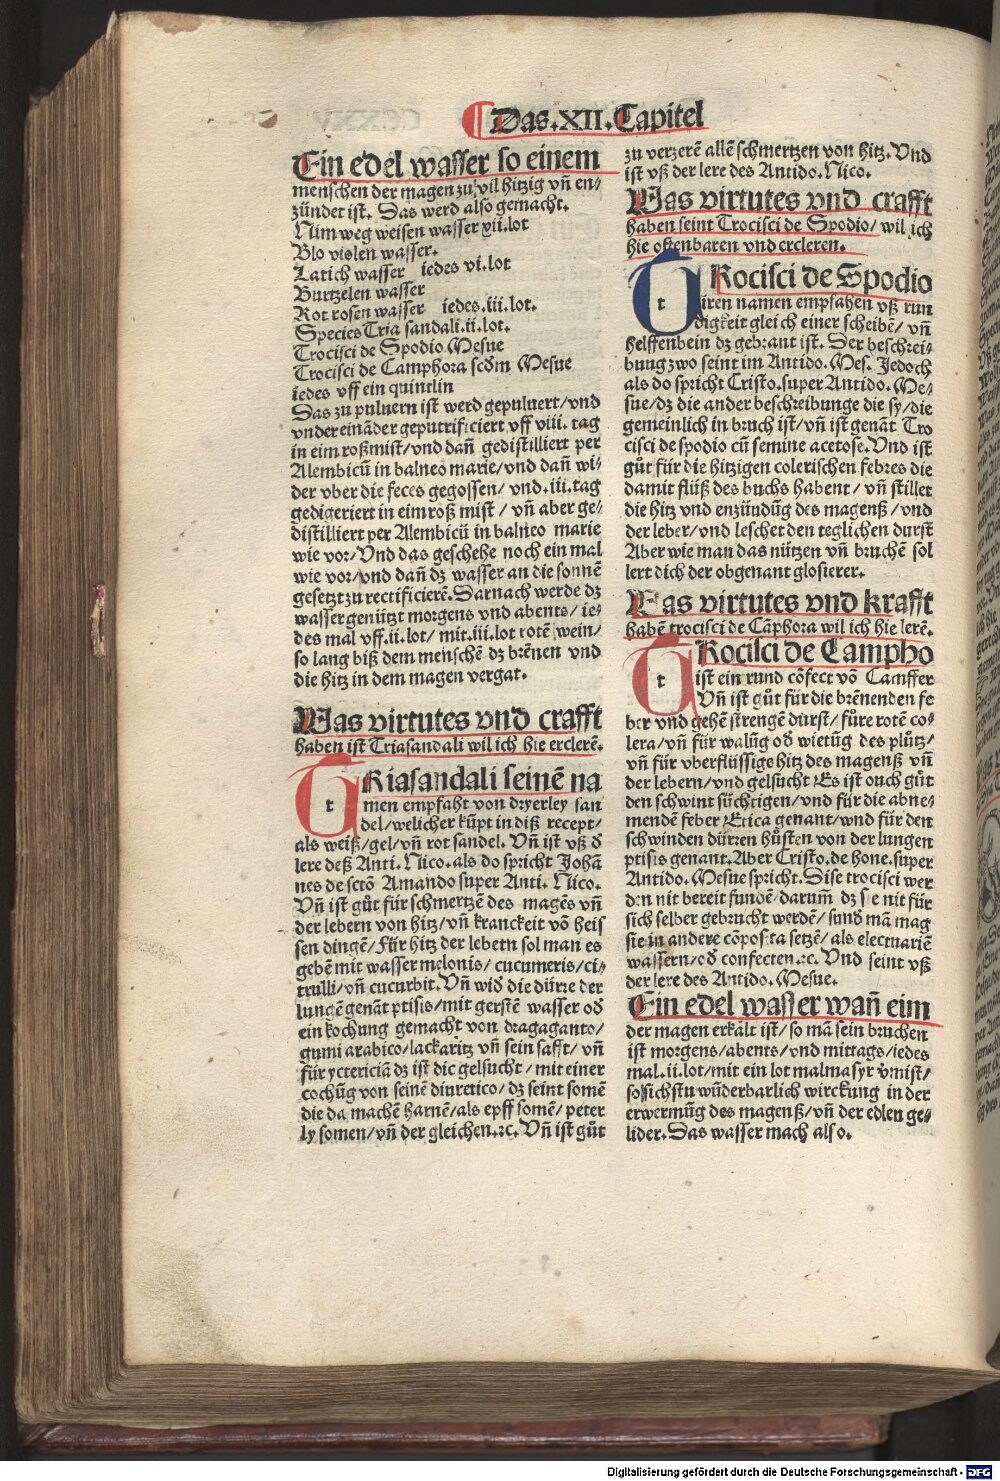 Das .XII. Capitel
Ein edel wasser so einem
menschen der magen zu vil hitzig vñ en⸗
zündet ist. Das werd also gemacht.
Nim weg weisen wasser xii.lot
Blo violen wasser.
Latich wasser iedes vi.lot
Burtzelen wasser
Rot rosen wasser iedes .iii.lot.
Species Tria sandali.ii.lot.
Trocisci de Spodio Mesue
Trocisci de Camphora scdm Mesue
iedes vff ein quintlin
Das zu puluern ist werd gepuluert/vnd
vnder eināder geputrificiert vff viii. tag
in eim roßmist/vnd dañ gedistilliert per
Alembicū in balneo marie/vnd dañ wi⸗
der vber die feces gegossen/ vnd .iii.tag
gedigeriert in eim roß mist/ vñ aber ge⸗
distilliert per Alembicū in balneo marie
wie vor/Vnd das geschehe noch ein mal
wie vor/vnd dañ dz wasser an die sonnē
gesetzt zu rectificierē. Darnach werde dz
wasser genützt morgens vnd abents/ ie⸗
des mal vff.ii.lot/ mit.iii.lot rotē wein/
so lang biß dem menschē dz brēnen vnd
die hitz in dem magen vergat.
Was virtutes vnd crafft
haben ist Triasandali wil ich hie erclerē.
tRiasandali seinē na
men empfaht von dryerley san
del/welicher kūpt in diß recept/
als weiß/gel/vñ rot sandel. Vñ ist vß d̄
lere deß Anti. Nico.als do spricht Johā
nes de sctō Amando super Anti. Nico.
Vñ ist gůt für schmertzē des magēs vñ
der lebern von hitz/vñ kranckeit vō heis
sen dingē/Für hitz der lebern sol man es
gebē mit wasser melonis/ cucumeris/ci⸗
trulli/vñ cucurbit.Vñ wid̄ die dürre der
lungē genāt ptisis/mit gerstē wasser od̄
ein kochung gemacht von dragaganto/
gumi arabico/lackaritz vñ sein safft/ vñ
für yctericiā dz ist die gelsucht/mit einer
cochūg von seinē diuretico/dz seint somē
die da machē harnē/als epff somē/peter
ly somen/vñ der gleichen.⁊c. Vñ ist gůt
zu verzerē allē schmertzen von hitz.Vnd
ist vß der lere des Antido.Nico.
Was virtutes vnd crafft
haben seint Trocisci de Spodio/ wil ich
hie offenbaren vnd ercleren.
tRocisci de Spodio
iren namen empfahen vß run
digkeit gleich einer scheibē/ vñ
helffenbein dz gebrant ist. Der beschrei⸗
bung zwo seint im Antido. Mes. Jedoch
als do spricht Cristo.super Antido. Me⸗
sue/dz die ander beschreibunge die sy/die
gemeinlich in bruch ist/vñ ist genāt Tro
cisci de spodio cū semine acetose.Vnd ist
gůt für die hitzigen colerischen febres die
damit flüß des buchs habent/ vñ stillet
die hitz vnd enzündūg des magenß/vnd
der leber/vnd leschet den teglichen durst
Aber wie man das nützen vñ bruchē sol
lert dich der obgenant glosierer.
Was virtutes vnd krafft
habē trocisci de Cāphora wil ich hie lerē.
tRocisci de Campho
ist ein rund cōfect vō Camffer
Vñ ist gůt für die brēnenden fe
ber vnd gehē strengē durst/ füre rotē co⸗
lera/vñ für walūg od̄ wietūg des plůtz/
vñ für vberflüssige hitz des magenß vñ
der lebern/vnd gelsucht/Es ist ouch gůt
den schwint süchtigen/vnd für die abne⸗
mendē feber Etica genant/wnd für den
schwinden dürren hůsten von der lungen
ptisis genant.Aber Cristo.de hone.super
Antido.Mesue spricht.Dise trocisci wer
den nit bereit fundē/darum̄ dz sie nit für
sich selber gebrucht werdē/ sund̄ mā mag
sie in andere cōposita setzē/ als electuariē
wassern/od̄ confecten.⁊c. Vnd seint vß
der lere des Antido. Mesue.
Ein edel wasser wañ eim
der magen erkālt ist/so mā sein bruchen
ist morgens/abents/vnd mittags/iedes
mal.ii.lot/mit ein lot malmasyr v̄mist/
so sichstu wūderbarlich wirckung in der
erwermūg des magenß/vñ der edlen ge⸗
lider.Das wasser mach also.
Digitalisierung gefördert durch die Deutsche Forschungsgemeinschaft - DFG